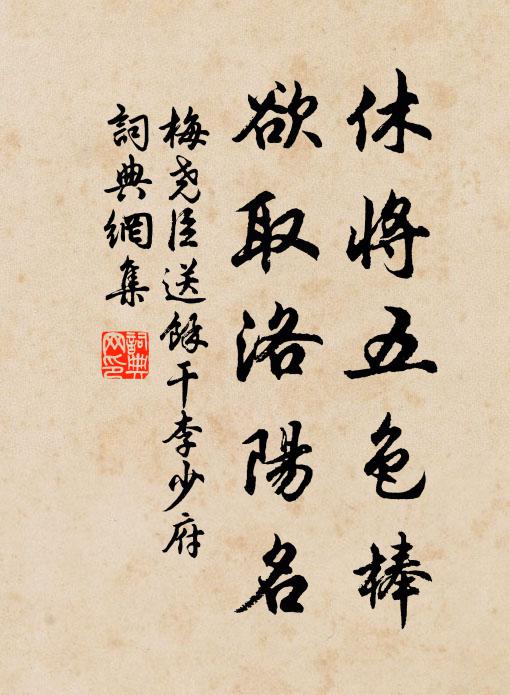 休將五色棒
欲取洛陽名
梅堯臣送餘干李少府
詞典網集
詞典網印